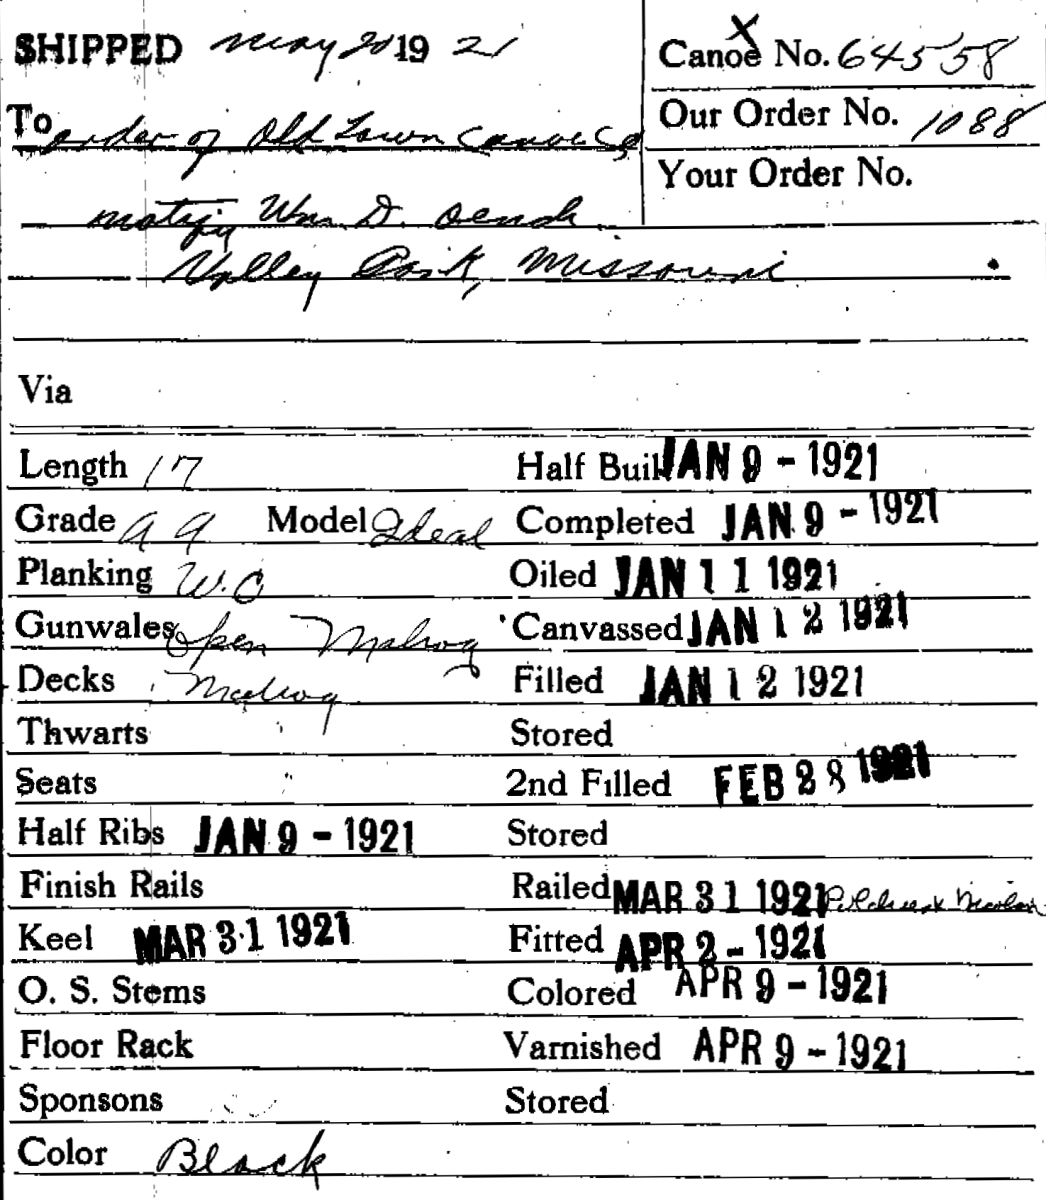 SHIPPED May 20 19 21
X
Canoe No. 64558
To order of Old Town Canoe Co
Our Order No. 1088
Your Order No.
Wm D.
Valley Park, Missouri
Via
Length 17 Half Built JAN 9 - 1921
Grade A A Model Ideal Completed JAN 9 - 1921
Planking W. C Oiled JAN 11 1921
Gunwales Open Mahog Canvassed JAN 12 1921
Decks Mahog Filled JAN 12 1921
Thwarts " Stored
Seats " 2nd Filled FEB 28 1921
Half Ribs JAN 9 - 1921 Stored
Finish Rails Railed MAR 31 1921
Keel MAR 31 1921 Fitted APR 2 - 1921
O. S. Stems Colored APR 9 - 1921
Floor Rack Varnished APR 9 - 1921
Sponsons Stored
Color Black